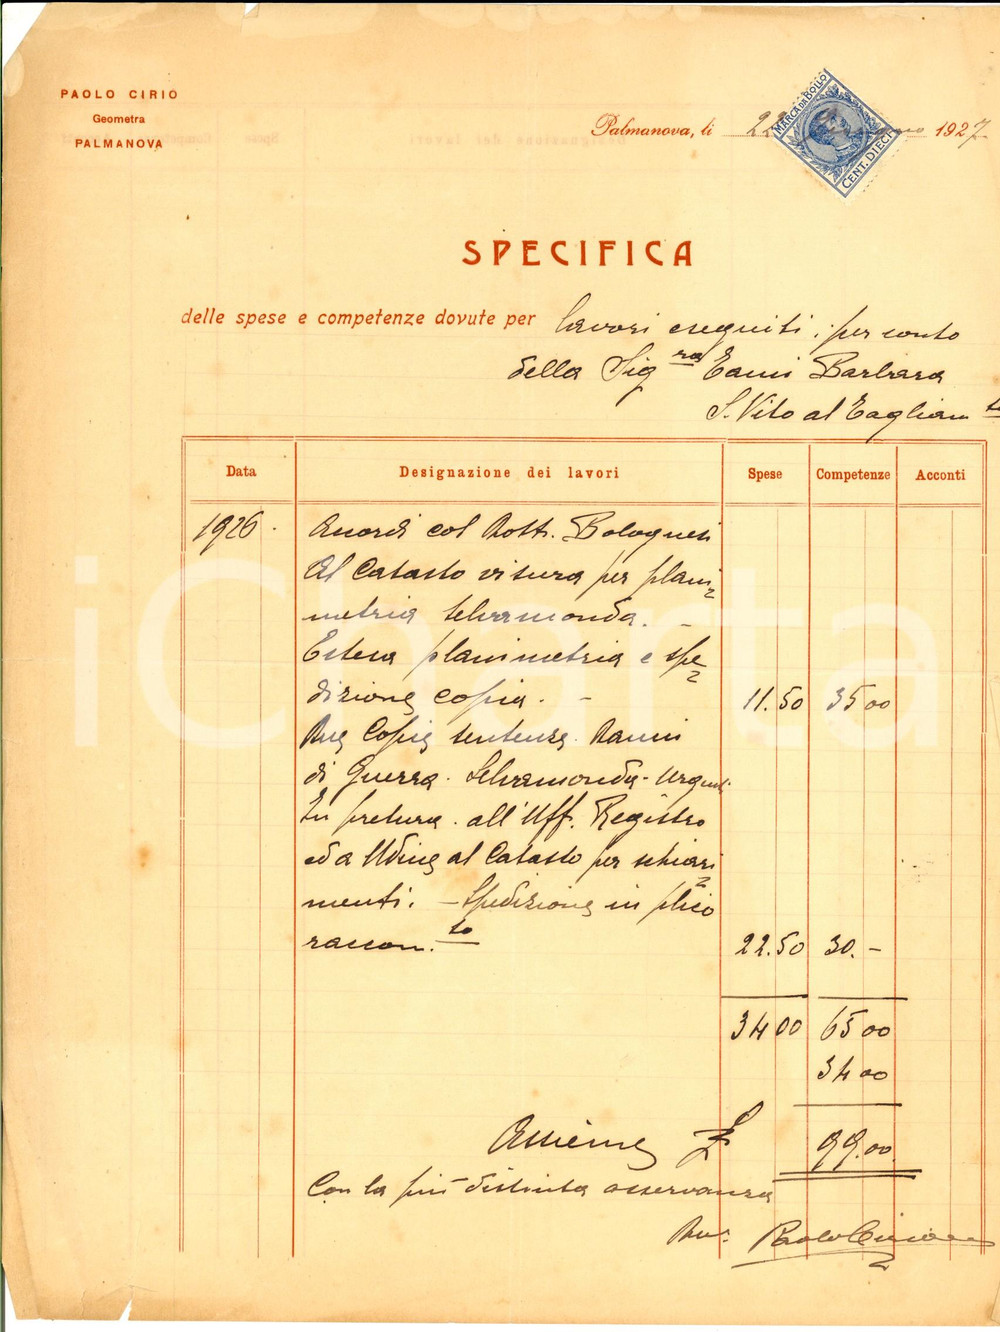 PAOLO CIRIO
Geometra
PALMANOVA
Palmanova, li 22 1927
MARCA DA BOLLO
CENT. DIECI
SPECIFICA
delle spese e competenze dovute per lavori eseguiti per conto
della Sig.ra Barbara
S. Vito al Tagliam.to
Data Designazione dei lavori Spese Competenze Acconti
1926. col Dott. Bolognesi
Al Catasto visura per plani=
metria Schramonda. -
Estesa planimetria e spe=
dizione copia. - 11.50 35 00
Una Copia sentenza Danni
di Guerra. Schramonda - Urgent.
In pretura. all'Uff. Registro
ed a Udine al Catasto per schiari=
menti. - Spedizione in plico
raccom.to 22.50 30.-
34 00 65 00
34 00
Assieme £ 99.00
Con la più distinta osservanza
Dev. Paolo Cirio
iCharta